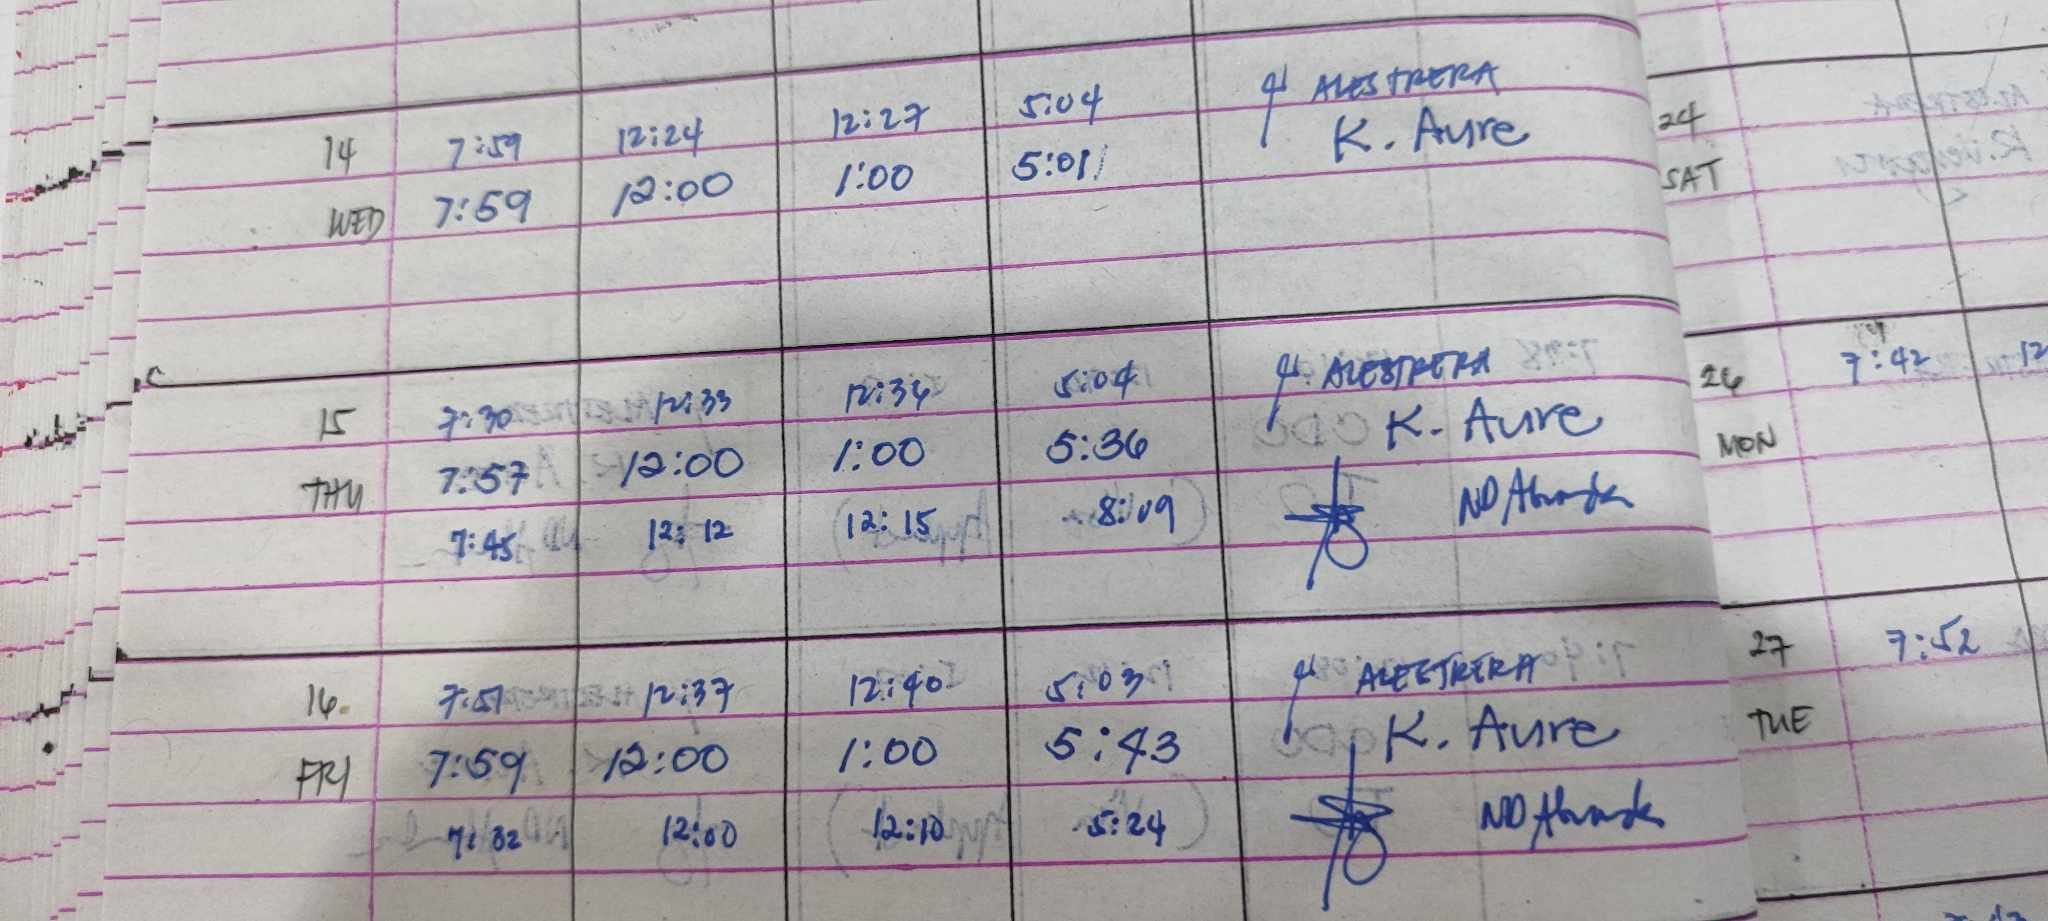 14 7:59 12:24 12:27 5:04 ALESTRERA
WED 7:59 12:00 1:00 5:01 K. Aure
15 7:30 12:33 12:36 5:04 ALESTRERA
THU 7:57 12:00 1:00 5:36 K. Aure
7:45 12:12 12:15 8:09 ND
16 7:51 12:37 12:40 5:03 ALESTRERA
FRI 7:59 12:00 1:00 5:43 K. Aure
7:32 12:00 12:10 5:24 ND
24
SAT
26 7:42 12
MON
27 7:52
TUE